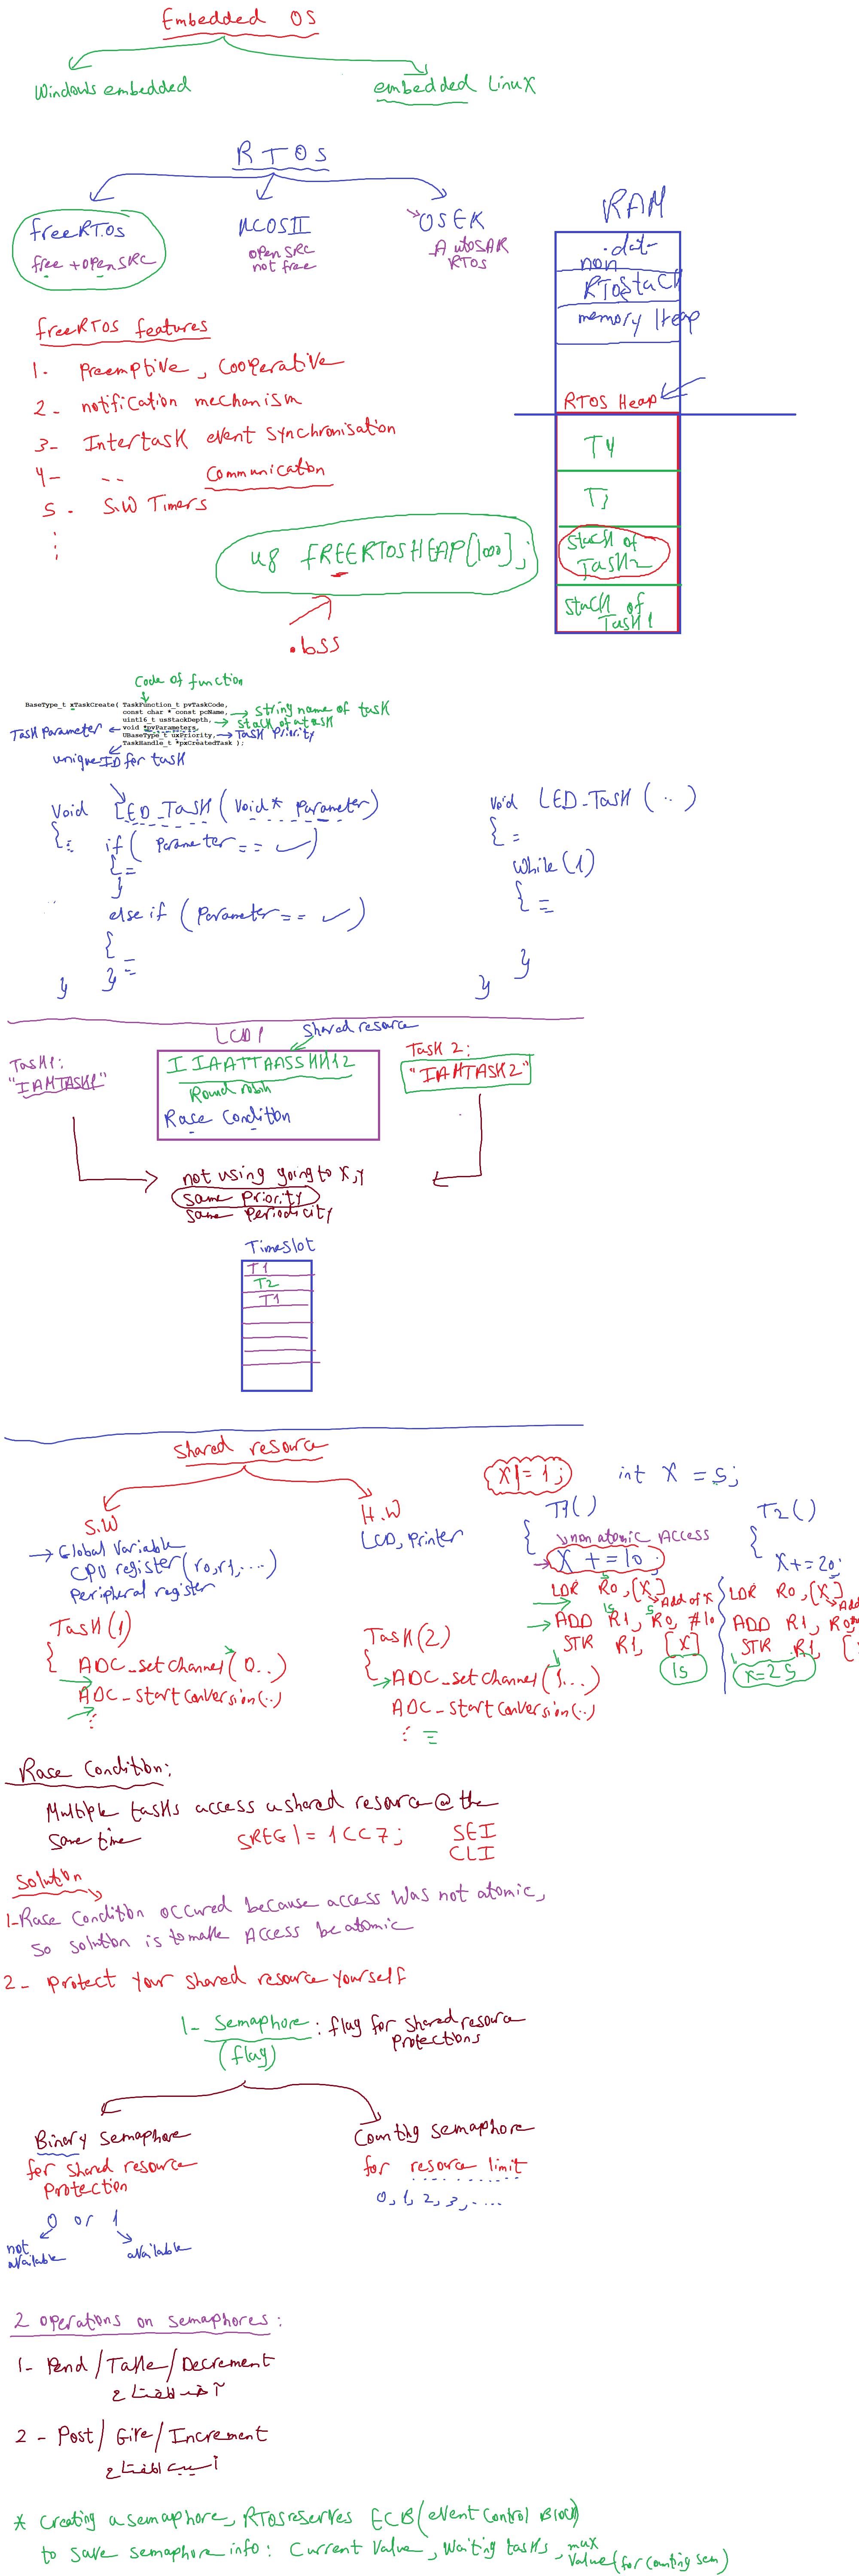 Embedded OS
Windows embedded
embedded Linux
RTOS
freeRTOS
free + open SRC
µCOSII
open SRC
not free
OSEK
AutoSAR
RTOS
RAM
.dat-
non
RTOS Stack
memory Heap
RTOS Heap
T4
T3
Stack of
Task2
Stack of
Task1
freeRTOS features
1- Preemptive, Cooperative
2- notification mechanism
3- Intertask event synchronisation
4- -- Communication
5- S.W Timers
u8 fREERTOSHEAP[1000];
.bss
Code of function
BaseType_t xTaskCreate( TaskFunction_t pvTaskCode,
const char * const pcName, → string name of task
uint16_t usStackDepth, → stack of a task
Task Parameter ← void *pvParameters,
UBaseType_t uxPriority, → Task Priority
TaskHandle_t *pxCreatedTask );
unique ID for task
Void LED_Task (Void* Parameter)
{ if( Parameter == ✓)
{
}
else if (Parameter == ✓)
{
}
}
void LED_Task (..)
{
While(1)
{
}
}
LCD1
Shared resource
Task1:
"IAMTASK1"
IIAATTAASSKK12
Round robin
Race Condition
Task 2:
"IAMTASK2"
not using going to X,Y
same Priority
same Periodicity
Timeslot
T1
T2
T1
Shared resource
S.W
→ Global Variable
CPU register(r0,r1,...)
Peripheral register
H.W
LCD, Printer
X|=1;
int X = 5;
T1()
{ non atomic Access
X += 10;
LDR R0,[X]
Add of X
ADD R1, R0, #10
STR R1, [X]
15
T2()
{
X+=20;
LDR R0,[X]
Add
ADD R1, R0
STR R1, [
X=25
Task(1)
{ ADC_setChannel(0..)
ADC_startConversion(..)
Task(2)
{ ADC_setChannel(1...)
ADC_startConversion(..)
Rase Condition:
Multiple tasks access a shared resource @ the
same time
SREG|= 1<<7;
SEI
CLI
Solution
1-Rase Condition occured because access was not atomic,
so solution is to make Access be atomic
2- Protect your shared resource yourself
1- Semaphore : flag for shared resource
Protections
(flag)
Binary Semaphore
for shared resource
Protection
0 or 1
not
available
available
Counting semaphore
for resource limit
0, 1, 2, 3, ....
2 operations on semaphores:
1- Pend/Take/Decrement
آخد المفتاح
2- Post/Give/Increment
أسيب المفتاح
* Creating a semaphore, RTOS reserves ECB(event Control Block)
to save semaphore info: Current Value, Waiting tasks, max
Value(for counting sem)